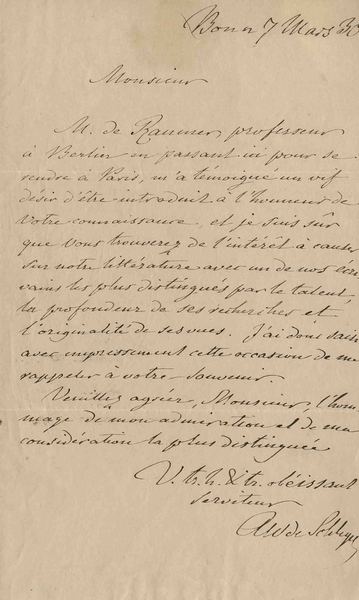 Bonn 7 Mars 30
Monsieur
M. de Raumer, professeur
à Berlin en passant ici pour se
rendre à Paris, m'a témoigné un vif
désir d'être introduit à l'honneur de
votre connaissance, et je suis sûr
que vous trouverez de l'intérêt à causer
sur notre littérature avec un de nos écri
vains les plus distingués par le talent,
la profondeur de ses recherches et
l'originalité de ses vues. J'ai donc saisi
avec empressement cette occasion de me
rappeler à votre souvenir.
Veuillez agréer, Monsieur, l'hom
mage de mon admiration et de ma
considération la plus distinguée
V. tr. h. & tr. obéissant
serviteur
AW de Schlegel